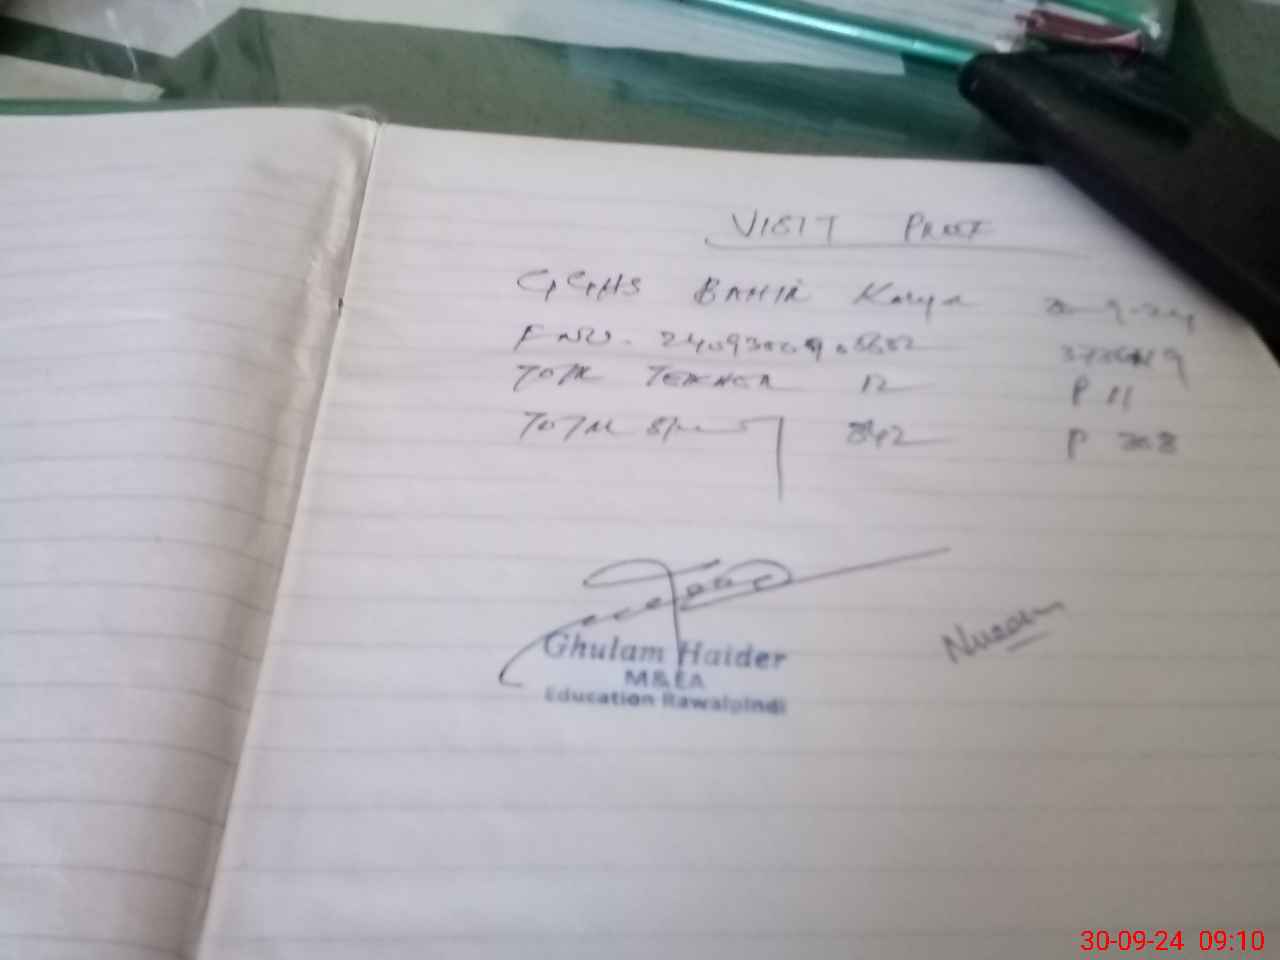 VISIT PROOF
GGHS BAHIR Kalya 30-9-24
F NO. 37330419
TOTAL TEACHER 12 P 11
TOTAL 842 P 308
Ghulam Haider
M&EA
Education Rawalpindi
30-09-24 09:10